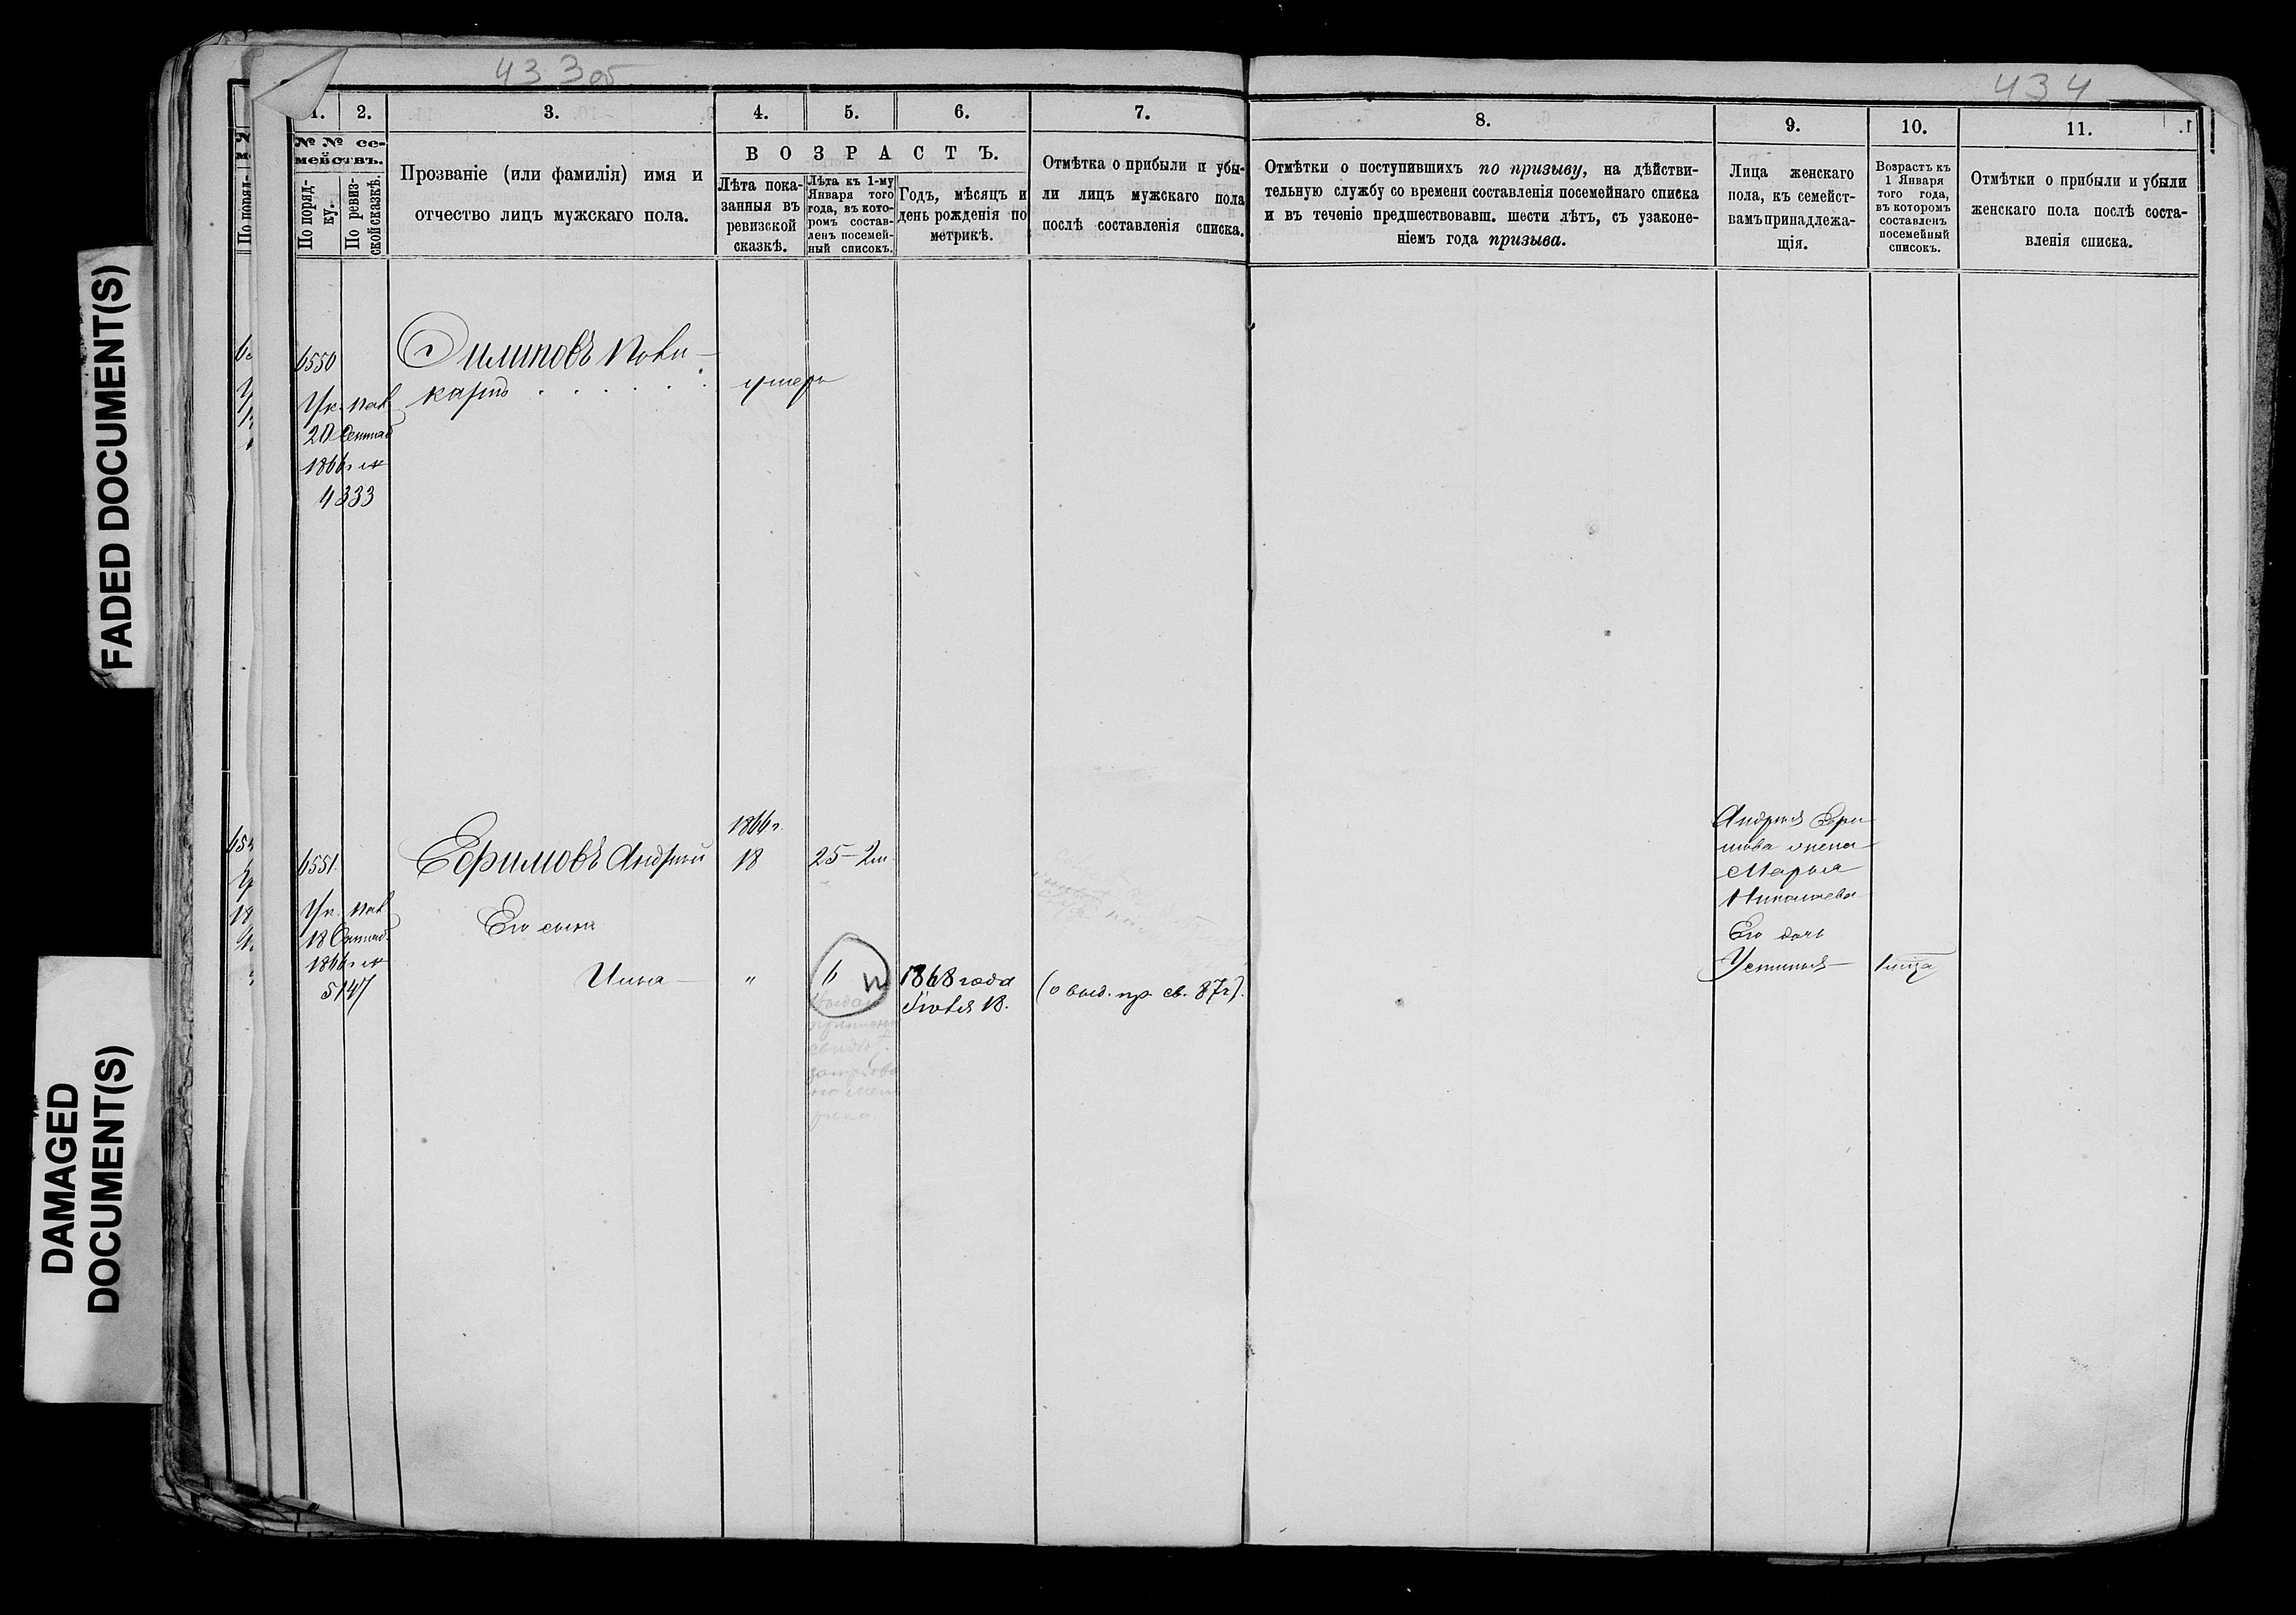 433 об
434
FADED DOCUMENT(S)
DAMAGED
DOCUMENT(S)
1.
2.
3.
4.
5.
6.
7.
8.
9.
10.
11.
№ № се-
мействъ.
По поряд-
ку.
По ревиз-
ской сказкѣ.
Прозваніе (или фамилія) имя и
отчество лицъ мужскаго пола.
ВОЗРАСТЪ.
Лѣта пока-
занныя въ
ревизской
сказкѣ.
Лѣта къ 1-му
Января того
года, въ кото-
ромъ состав-
ленъ посемей-
ный списокъ.
Годъ, мѣсяцъ и
день рожденія по
метрикѣ.
Отмѣтка о прибыли и убы-
ли лицъ мужскаго пола
послѣ составленія списка.
Отмѣтки о поступившихъ по призыву, на дѣйстви-
тельную службу со времени составленія посемейнаго списка
и въ теченіе предшествовавш. шести лѣтъ, съ узаконе-
ніемъ года призыва.
Лица женскаго
пола, къ семейст-
вамъ принадлежа-
щія.
Возрастъ къ
1 Января
того года,
въ которомъ
составленъ
посемейный
списокъ.
Отмѣтки о прибыли и убыли
женскаго пола послѣ соста-
вленія списка.
6550
Ук. Пал
20 Сентяб
1866 г. №
4333
карпъ
умеръ
6551.
Ук. Пал
18
1866 г. №
5147
1866 г.
Ефимовъ Андрей
18
25-2м
Его сынъ
Илья
"
6
1868 года
Іюля 18.
(о выд. пр. св. 87 г).
Андрея Ефи
мова жена
Марья
Николаева
Его дочь
Устинья